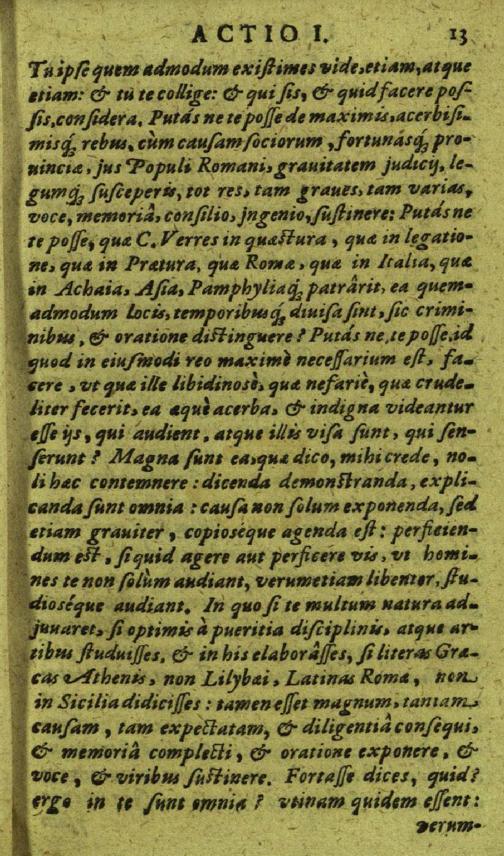 ACTIO I. 13
Tu ipse quem admodum existimes vide, etiam, atque
etiam: & tu te collige: & qui sis, & quid facere pos-
sis, considera. Putás ne te posse de maximis, acerbissi-
misq́; rebus, cùm causam sociorum, fortunásq́; pro-
uinciæ, jus Populi Romani, grauitatem judicij, le-
gumq́; susceperis, tot res, tam graues, tam varias,
voce, memoriâ, consilio, jngenio, sustinere: Putás ne
te posse, quæ C. Verres in quæstura, quæ in legatio-
ne, quæ in Prætura, quæ Romæ, quæ in Italia, quæ
in Achaia, Asia, Pamphyliaq́; patrârit, ea quem-
admodum locis, temporibusq́; diuisa sint, sic crimi-
nibus, & oratione distinguere? Putás ne, te posse, id
quod in eiusmodi reo maximè necessarium est, fa-
cere, vt quæ ille libidinosè, quæ nefariè, quæ crude-
liter fecerit, ea æquè acerba, & indigna videantur
esse ijs, qui audient, atque illis visa sunt, qui sen-
serunt? Magna sunt ea, quæ dico, mihi crede, no-
li hæc contemnere: dicenda demonstranda, expli-
canda sunt omnia: causa non solum exponenda, sed
etiam grauiter, copioséque agenda est: perficien-
dum est, si quid agere aut perficere vis, vt homi-
nes te non solùm audiant, verumetiam libenter, stu-
dioséque audiant. In quo si te multum natura ad-
juuaret, si optimis à pueritia disciplinis, atque ar-
tibus studuisses, & in his elaborâsses, si literas Græ-
cas Athenis, non Lilybæi, Latinas Romæ, non
in Sicilia didicisses: tamen esset magnum, tantam
causam, tam expectatam, & diligentiâ consequi,
& memoriâ complecti, & oratione exponere, &
voce, & viribus sustinere. Fortasse dices, quid?
ergo in te sunt omnia? vtinam quidem essent:
verum-